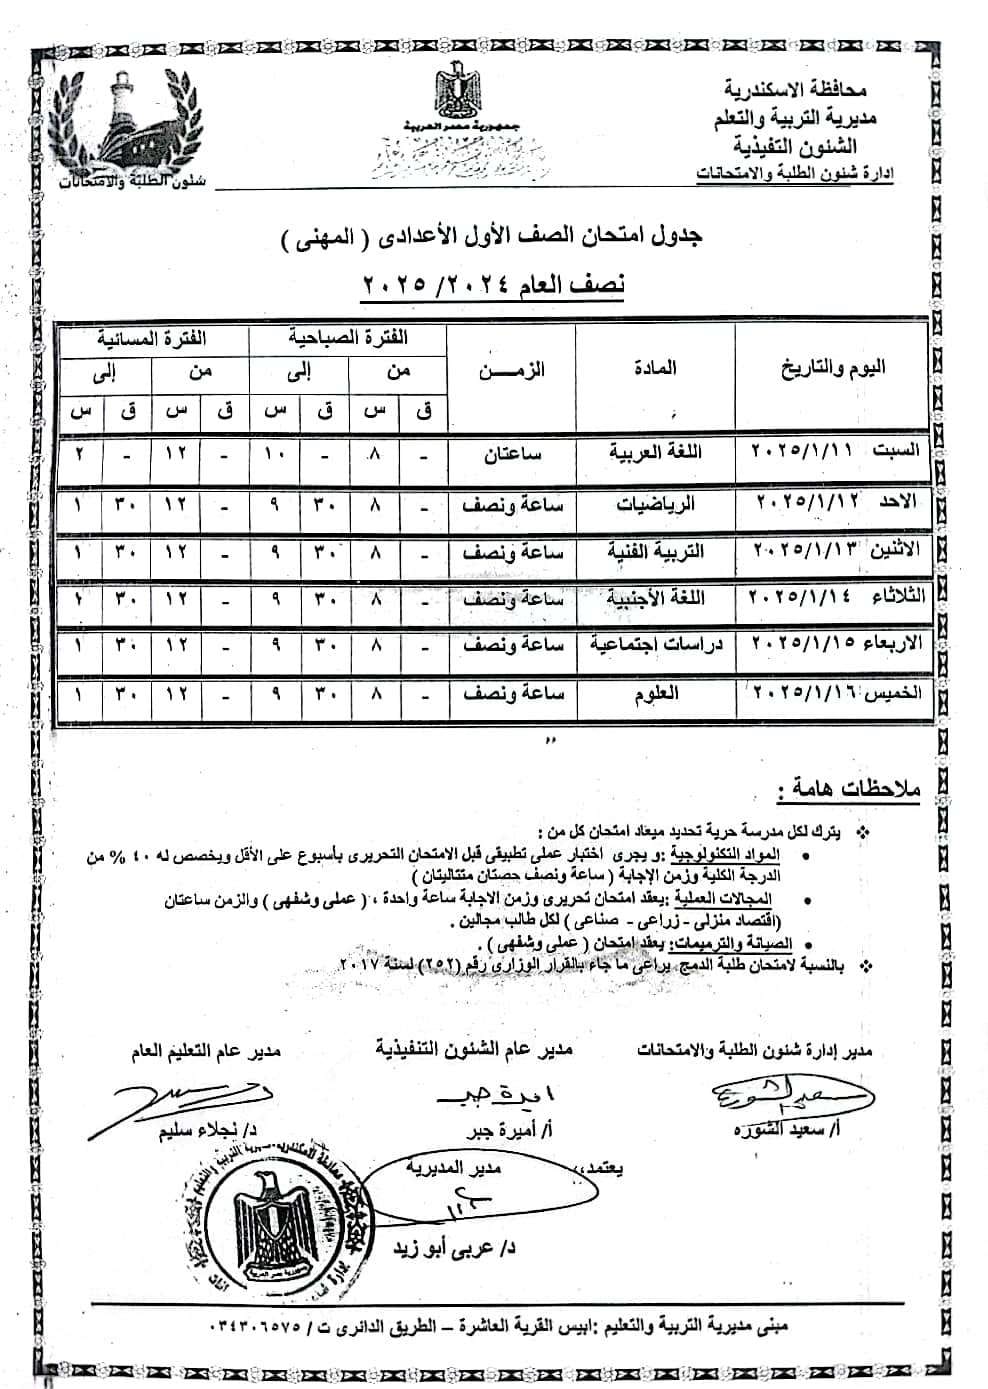 محافظة الاسكندرية
مديرية التربية والتعلم
الشئون التفيذية
إدارة شئون الطلبة والامتحانات
جمهورية مصر العربية
شئون الطلبة والامتحانات
جدول امتحان الصف الأول الأعدادى ( المهنى )
نصف العام ٢٠٢٤/ ٢٠٢٥
اليوم والتاريخ المادة الزمـــن الفترة الصباحية الفترة المسائية
من إلى من إلى
ق س ق س ق س ق س
السبت ٢٠٢٥/١/١١ اللغة العربية ساعتان - ٨ - ١٠ - ١٢ - ٢
الاحد ٢٠٢٥/١/١٢ الرياضيات ساعة ونصف - ٨ ٣٠ ٩ - ١٢ ٣٠ ١
الاثنين ٢٠٢٥/١/١٣ التربية الفنية ساعة ونصف - ٨ ٣٠ ٩ - ١٢ ٣٠ ١
الثلاثاء ٢٠٢٥/١/١٤ اللغة الأجنبية ساعة ونصف - ٨ ٣٠ ٩ - ١٢ ٣٠ ١
الاربعاء ٢٠٢٥/١/١٥ دراسات اجتماعية ساعة ونصف - ٨ ٣٠ ٩ - ١٢ ٣٠ ١
الخميس ٢٠٢٥/١/١٦ العلوم ساعة ونصف - ٨ ٣٠ ٩ - ١٢ ٣٠ ١
ملاحظات هامة :
يترك لكل مدرسة حرية تحديد ميعاد امتحان كل من :
المواد التكنولوجية :و يجرى اختبار عملى تطبيقى قبل الامتحان التحريرى بأسبوع على الأقل ويخصص له ٤٠ % من
الدرجة الكلية وزمن الإجابة ( ساعة ونصف حصتان متتاليتان )
المجالات العملية :يعقد امتحان تحريرى وزمن الاجابة ساعة واحدة ، ( عملى وشفهى ) والزمن ساعتان
(اقتصاد منزلى - زراعى - صناعى ) لكل طالب مجالين .
الصيانة والترميمات: يعقد امتحان ( عملى وشفهى ) .
بالنسبة لامتحان طلبة الدمج يراعى ما جاء بالقرار الوزارى رقم (٢٥٢) لسنة ٢٠١٧
مدير إدارة شئون الطلبة والامتحانات مدير عام الشئون التنفيذية مدير عام التعليم العام
أ/ سعيد الشوره أ/ أميرة جبر د/ نجلاء سليم
يعتمد،، مدير المديرية
د/ عربى أبو زيد
مبنى مديرية التربية والتعليم :ابيس القرية العاشرة – الطريق الدائرى ت / ٠٣٤٣٠٦٥٧٥